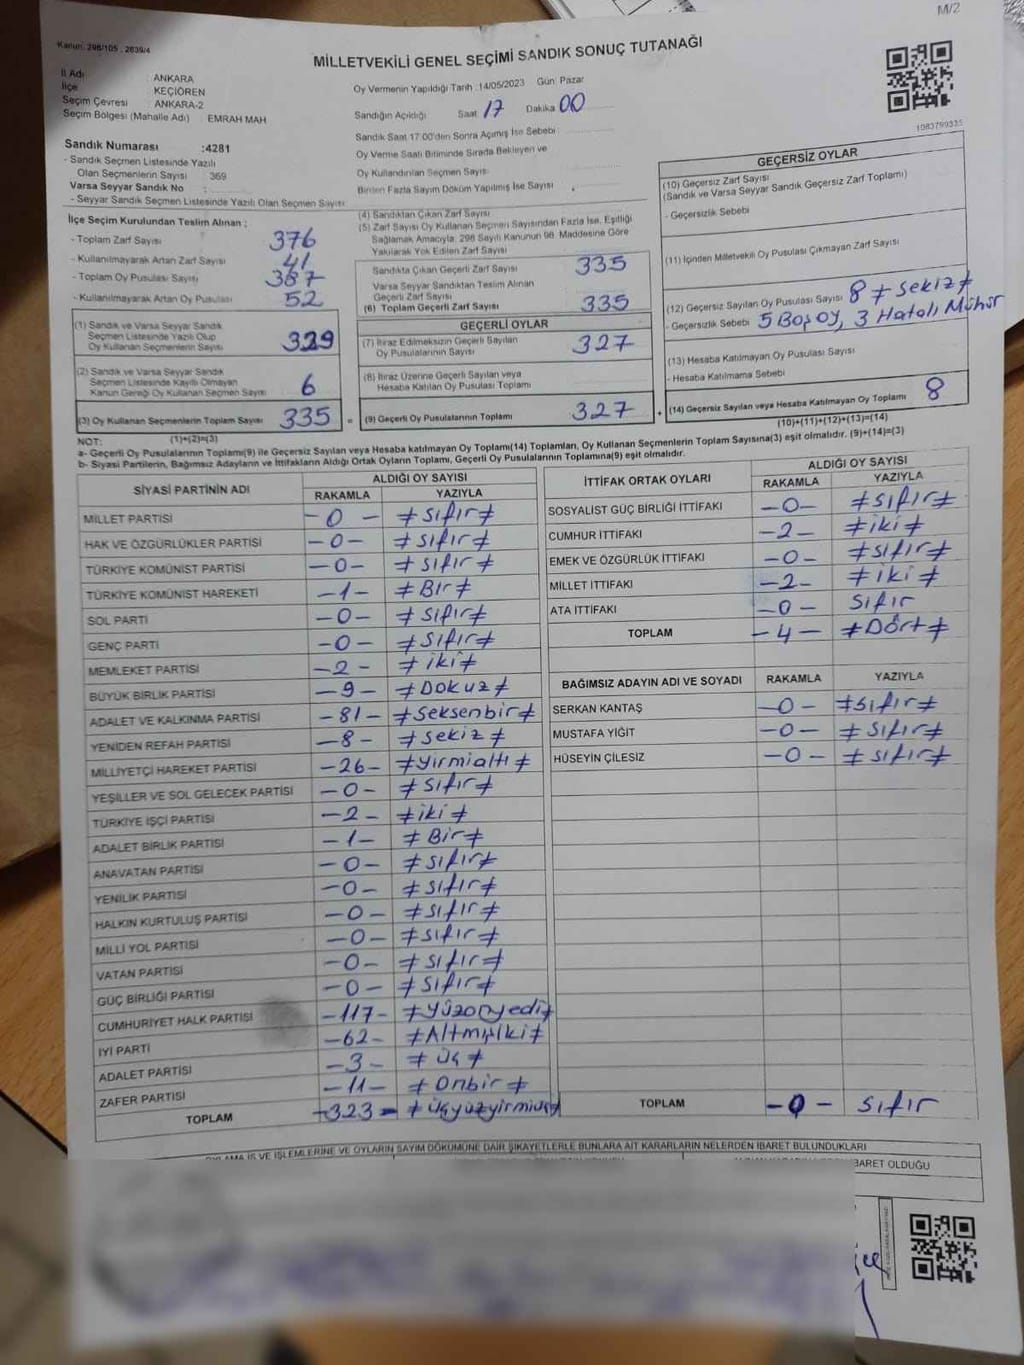 M/2
Kanun: 298/105 , 2839/4
MİLLETVEKİLİ GENEL SEÇİMİ SANDIK SONUÇ TUTANAĞI
İl Adı : ANKARA
İlçe : KEÇİÖREN
Seçim Çevresi : ANKARA-2
Seçim Bölgesi (Mahalle Adı) : EMRAH MAH
Oy Vermenin Yapıldığı Tarih :14/05/2023 Gün: Pazar
Sandığın Açıldığı Saat 17 Dakika 00
Sandık Saat 17:00'den Sonra Açılmış İse Sebebi
Oy Verme Saati Bitiminde Sırada Bekleyen ve
Oy Kullandırılan Seçmen Sayısı
Birden Fazla Sayım Döküm Yapılmış İse Sayısı
1083799335
Sandık Numarası :4281
- Sandık Seçmen Listesinde Yazılı
Olan Seçmenlerin Sayısı : 369
Varsa Seyyar Sandık No :
- Seyyar Sandık Seçmen Listesinde Yazılı Olan Seçmen Sayısı
İlçe Seçim Kurulundan Teslim Alınan ;
- Toplam Zarf Sayısı 376
- Kullanılmayarak Artan Zarf Sayısı 41
- Toplam Oy Pusulası Sayısı 387
- Kullanılmayarak Artan Oy Pusulası 52
(1) Sandık ve Varsa Seyyar Sandık
Seçmen Listesinde Yazılı Olup
Oy Kullanan Seçmenlerin Sayısı 329
(2) Sandık ve Varsa Seyyar Sandık
Seçmen Listesinde Kayıtlı Olmayan
Kanun Gereği Oy Kullanan Seçmen Sayısı 6
(3) Oy Kullanan Seçmenlerin Toplam Sayısı 335 =
(4) Sandıktan Çıkan Zarf Sayısı
(5) Zarf Sayısı Oy Kullanan Seçmen Sayısından Fazla İse, Eşitliği
Sağlamak Amacıyla; 298 Sayılı Kanunun 98. Maddesine Göre
Yakılarak Yok Edilen Zarf Sayısı
Sandıkta Çıkan Geçerli Zarf Sayısı 335
Varsa Seyyar Sandıktan Teslim Alınan
Geçerli Zarf Sayısı
(6) Toplam Geçerli Zarf Sayısı 335
GEÇERLİ OYLAR
(7) İtiraz Edilmeksizin Geçerli Sayılan
Oy Pusulalarının Sayısı 327
(8) İtiraz Üzerine Geçerli Sayılan veya
Hesaba Katılan Oy Pusulası Toplamı
(9) Geçerli Oy Pusulalarının Toplamı 327 +
GEÇERSİZ OYLAR
(10) Geçersiz Zarf Sayısı
(Sandık ve Varsa Seyyar Sandık Geçersiz Zarf Toplamı)
- Geçersizlik Sebebi
(11) İçinden Milletvekili Oy Pusulası Çıkmayan Zarf Sayısı
(12) Geçersiz Sayılan Oy Pusulası Sayısı 8 ≠ sekiz ≠
- Geçersizlik Sebebi 5 Boş oy, 3 Hatalı Mühür
(13) Hesaba Katılmayan Oy Pusulası Sayısı
- Hesaba Katılmama Sebebi
(14) Geçersiz Sayılan veya Hesaba Katılmayan Oy Toplamı 8
(10)+(11)+(12)+(13)=(14)
NOT: (1)+(2)=(3)
a- Geçerli Oy Pusulalarının Toplamı(9) ile Geçersiz Sayılan veya Hesaba katılmayan Oy Toplamı(14) Toplamları, Oy Kullanan Seçmenlerin Toplam Sayısına(3) eşit olmalıdır. (9)+(14)=(3)
b- Siyasi Partilerin, Bağımsız Adayların ve İttifakların Aldığı Ortak Oyların Toplamı, Geçerli Oy Pusulalarının Toplamına(9) eşit olmalıdır.
SİYASİ PARTİNİN ADI ALDIĞI OY SAYISI
RAKAMLA YAZIYLA
MİLLET PARTİSİ -0- ≠ sıfır ≠
HAK VE ÖZGÜRLÜKLER PARTİSİ -0- ≠ sıfır ≠
TÜRKİYE KOMÜNİST PARTİSİ -0- ≠ sıfır ≠
TÜRKİYE KOMÜNİST HAREKETİ -1- ≠ Bir ≠
SOL PARTİ -0- ≠ sıfır ≠
GENÇ PARTİ -0- ≠ sıfır ≠
MEMLEKET PARTİSİ -2- ≠ iki ≠
BÜYÜK BİRLİK PARTİSİ -9- ≠ Dokuz ≠
ADALET VE KALKINMA PARTİSİ -81- ≠ Seksenbir ≠
YENİDEN REFAH PARTİSİ -8- ≠ sekiz ≠
MİLLİYETÇİ HAREKET PARTİSİ -26- ≠ yirmialtı ≠
YEŞİLLER VE SOL GELECEK PARTİSİ -0- ≠ sıfır ≠
TÜRKİYE İŞÇİ PARTİSİ -2- ≠ iki ≠
ADALET BİRLİK PARTİSİ -1- ≠ Bir ≠
ANAVATAN PARTİSİ -0- ≠ sıfır ≠
YENİLİK PARTİSİ -0- ≠ sıfır ≠
HALKIN KURTULUŞ PARTİSİ -0- ≠ sıfır ≠
MİLLİ YOL PARTİSİ -0- ≠ sıfır ≠
VATAN PARTİSİ -0- ≠ sıfır ≠
GÜÇ BİRLİĞİ PARTİSİ -0- ≠ sıfır ≠
CUMHURİYET HALK PARTİSİ -117- ≠ Yüzonyedi ≠
İYİ PARTİ -62- ≠ Altmışiki ≠
ADALET PARTİSİ -3- ≠ üç ≠
ZAFER PARTİSİ -11- ≠ Onbir ≠
TOPLAM -323- ≠ üçyüzyirmiüç ≠
İTTİFAK ORTAK OYLARI ALDIĞI OY SAYISI
RAKAMLA YAZIYLA
SOSYALİST GÜÇ BİRLİĞİ İTTİFAKI -0- ≠ sıfır ≠
CUMHUR İTTİFAKI -2- ≠ iki ≠
EMEK VE ÖZGÜRLÜK İTTİFAKI -0- ≠ sıfır ≠
MİLLET İTTİFAKI -2- ≠ iki ≠
ATA İTTİFAKI -0- sıfır
TOPLAM -4- ≠ Dört ≠
BAĞIMSIZ ADAYIN ADI VE SOYADI RAKAMLA YAZIYLA
SERKAN KANTAŞ -0- ≠ sıfır ≠
MUSTAFA YİĞİT -0- ≠ sıfır ≠
HÜSEYİN ÇİLESİZ -0- ≠ sıfır ≠
TOPLAM -0- sıfır
İŞ VE İŞLEMLERİNE VE OYLARIN SAYIM DÖKÜMÜNE DAİR ŞİKAYETLERLE BUNLARA AİT KARARLARIN NELERDEN İBARET BULUNDUKLARI
İBARET OLDUĞU